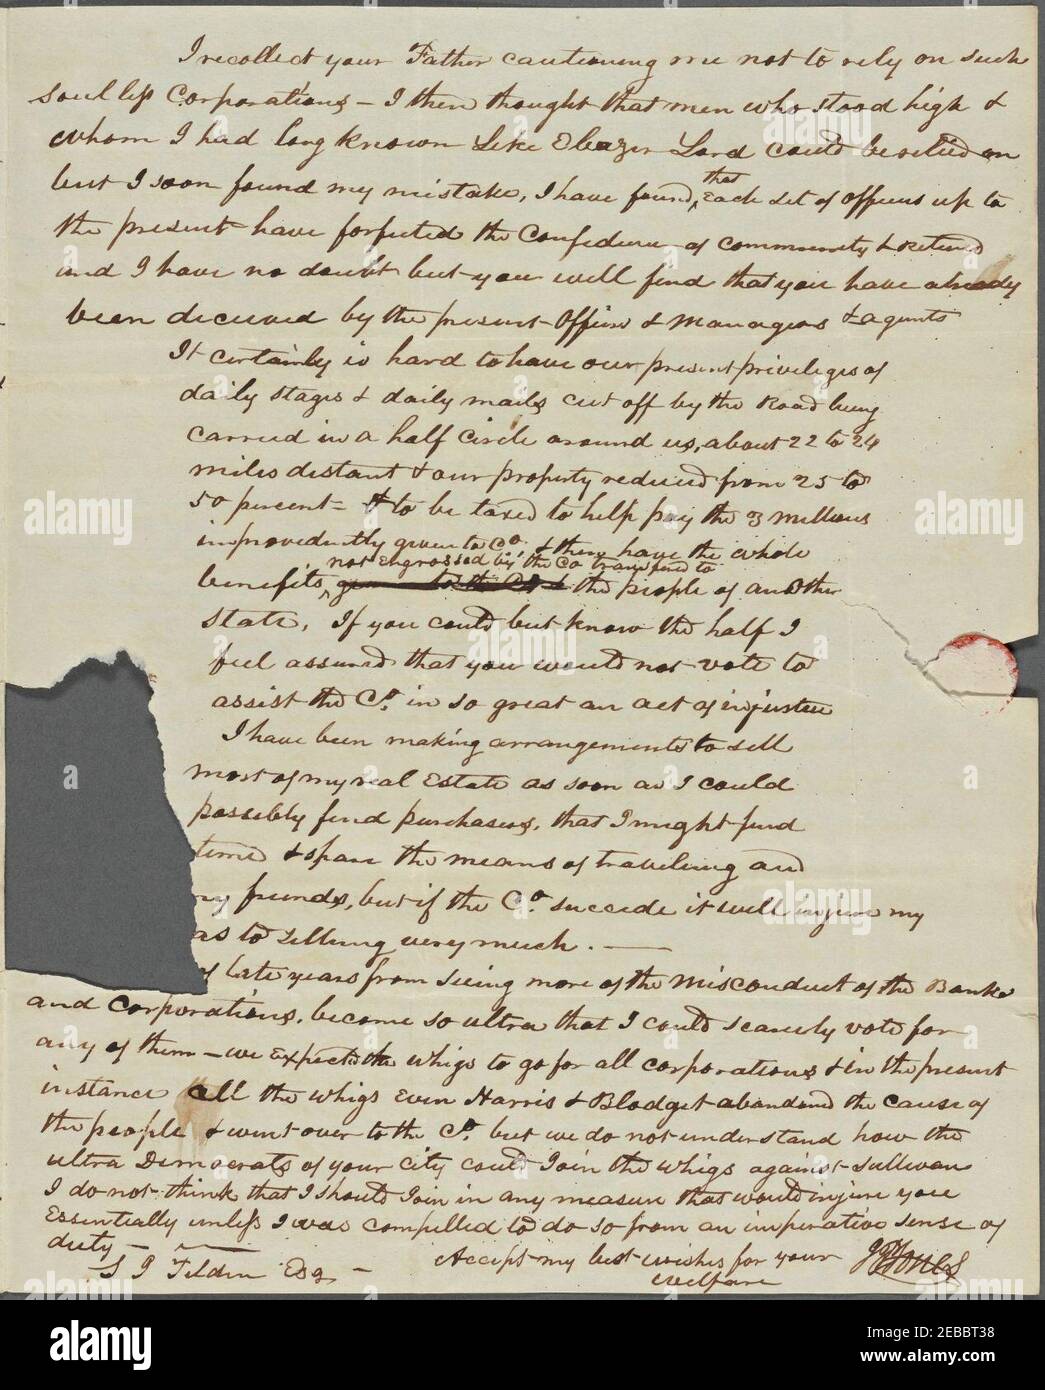 I recollect your Father cautioning me not to rely on such
soulless Corporations, – I then thought that men who stood high &
whom I had long known Like Eleazer Lord could be relied on
but I soon found my mistake, I have found, that Each Set of Officers up to
the present have forfeited the Confidence of community & retired
and I have no doubt but you will find that you have already
been deceived by the present Officers & Managers & agents
It certainly is hard to have our present privileges of
daily stages & daily mails cut off by the Road being
carried in a half circle around us, about 22 to 24
miles distant & our property reduced from 25 to
50 percent – & to be taxed to help pay the 3 Millions
improvidently given to Co, & then have the whole
not engrossed by the Co transferred to
benefits, the people of another
State, If you could but know the half I
feel assured that you would not vote to
assist the Co. in so great an act of injustice
I have been making arrangements to sell
most of my real Estate as soon as I could
possibly find purchasers, that I might find
time & spare the means of traveling and
my friends, but if the Co. succeede it will injure my
as to selling very much. —
of late years from seeing more of the Misconduct of the Banks
and Corporations, become so ultra that I could scarcely vote for
any of them – we Expected the whigs to go for all corporations & in the present
instance all the whigs Even Harris & Blodget abandoned the cause of
the people & went over to the Co. but we do not understand how the
ultra Democrats of your city could Join the whigs against Sullivan
I do not think that I should Join in any measure that would injure you
Essentially unless I was compelled to do so from an imperative sense of
duty —
Accept my best wishes for your
welfare
Jones
S J Tilden Esq –
alamy
Image ID: 2EBBT38
www.alamy.com